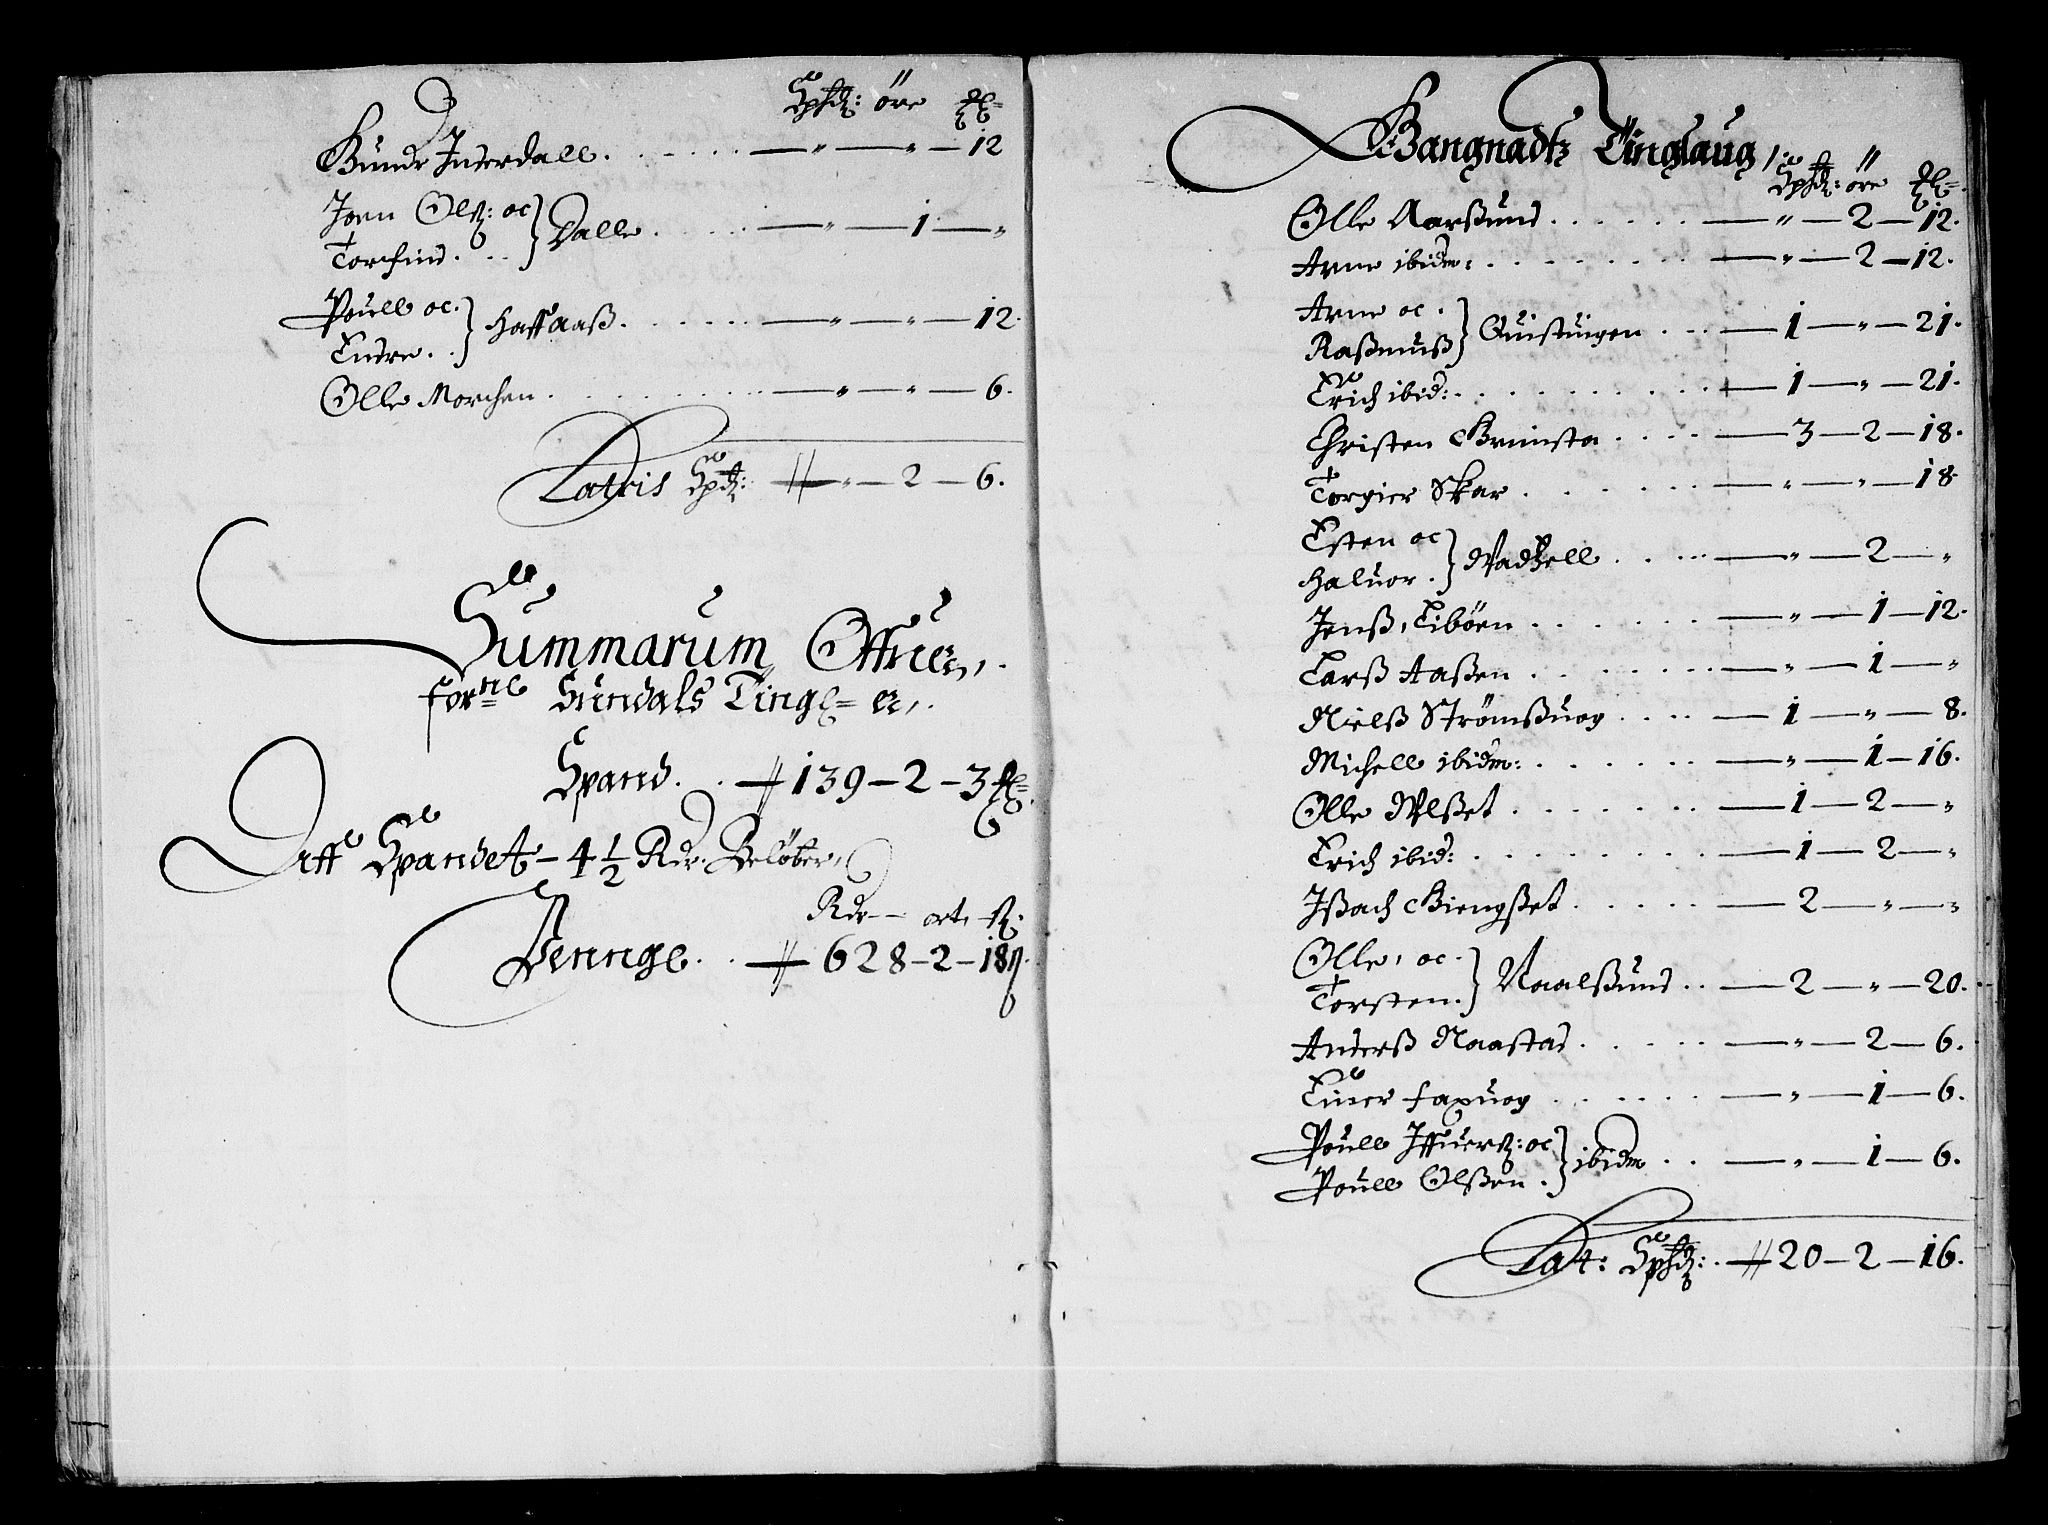 Spfd: öre ꝑl=
Gunde Inderdall. — " — " — 12
Joen Olß: oc
Torfind. } Dalle. — " — 1 — "
Poull oc.
Endre. } Haffsaaß. — " — " — 12.
Olle Morchen. — " — " — 6.
Latris Spd: — " — 2 — 6.
Summarum Offuer,
forne Sundals Tingl= er,
Spand. 139 — 2 — 3 pl=
Aff Spandet — 4 1/2 Rdr. Beløber,
Rdr — ort, ß:
Pennge. 628 — 2 — 18 ß.
Bangnadtz Tinglaug,
Spfd: öre pl=
Olle Aarßund. — " — 2 — 12.
Arne ibidm: — " — 2 — 12.
Arne oc.
Raßmuß } Quistuigen. — 1 — " — 21.
Erich ibid: — 1 — " — 21.
Christen Brunsta. — 3 — 2 — 18.
Torgier Skar. — " — " — 18.
Esten oc
Haluor. } Vadsell. — " — 2 — "
Jenß, Eibøen. — " — 1 — 12.
Larß Aaßen. — " — 1 — "
Nielß Strømßuog. — 1 — " — 8.
Michell ibidm: — " — 1 — 16.
Olle Ulßet. — 1 — 2 — "
Erich ibid: — 1 — 2 — "
Jßach Biengßet. — 2 — " — "
Olle, oc.
Torsten. } Naalßund. — 2 — " — 20.
Anderß Naastad. — " — 2 — 6.
Einer Faxuog. — " — 1 — 6.
Poull Iffuerß: oc
Poull Olßen. } ibidm. — " — 1 — 6.
Lat: Spfd: 20 — 2 — 16.